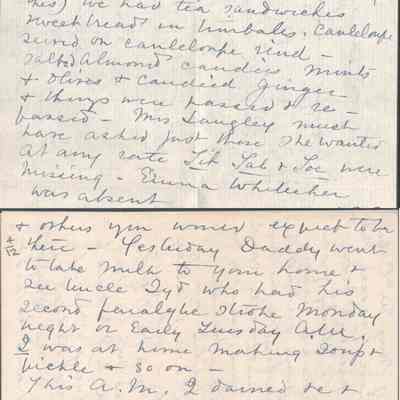 we had tea sandwiches
sweetbreads in timbales. Canteloupe
served on canteloupe rind –
salted almonds candies mints
& olives & candied ginger
& things were passed & re –
passed – Mrs Langley must
have asked just those she wanted
at any rate Tit Tat & Toe were
missing – Emma Whiticher
was absent
& others you would expect to be
4/12 there – Yesterday Daddy went
to take milk to your home &
see Uncle Syd who had his
second paralytic stroke Monday
night or Early Tuesday A.M.
I was at home making soup &
pickle & so on –
This A.M. I darned &